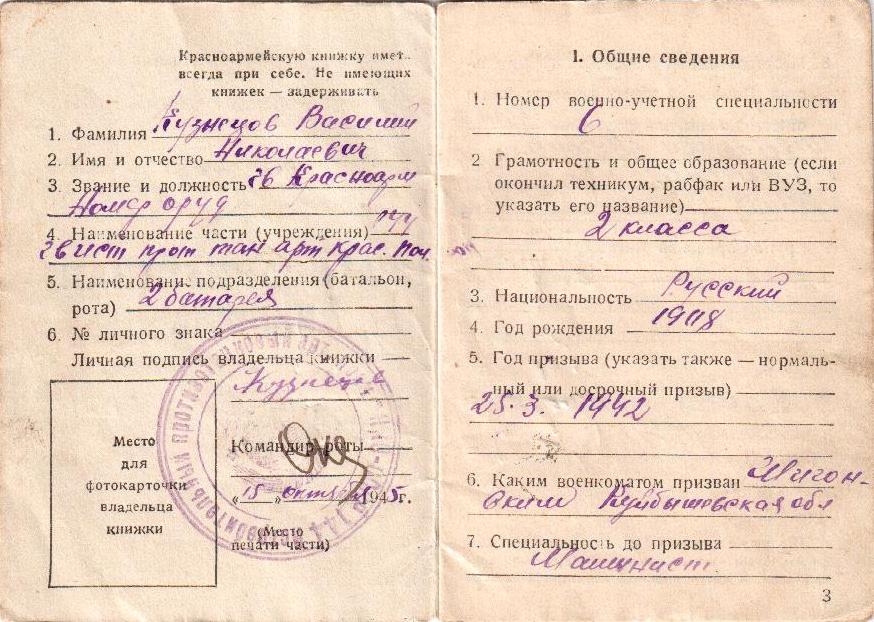 Красноармейскую книжку имет..
всегда при себе. Не имеющих
книжек — задерживать
1. Фамилия Кузнецов Василий
2. Имя и отчество Николаевич
3. Звание и должность гв Красноарм
Номер оруд
4. Наименование части (учреждения)
гв ист прот тан арт Крас.
5. Наименование подразделения (батальон,
рота) 2 батарея
6. № личного знака
Личная подпись владельца книжки
Кузнецов
Командир роты
„15„ октября 1945г.
(Место
печати части)
Место
для
фотокарточки
владельца
книжки
1. Общие сведения
1. Номер военно-учетной специальности
6
2 Грамотность и общее образование (если
окончил техникум, рабфак или ВУЗ, то
указать его название)
2 класса
3. Национальность Русский
4. Год рождения 1908
5. Год призыва (указать также — нормаль-
ный или досрочный призыв)
25.3. 1942
6. Каким военкоматом призван Шигон-
ским Куйбышевская обл
7. Специальность до призыва
Машинист
3